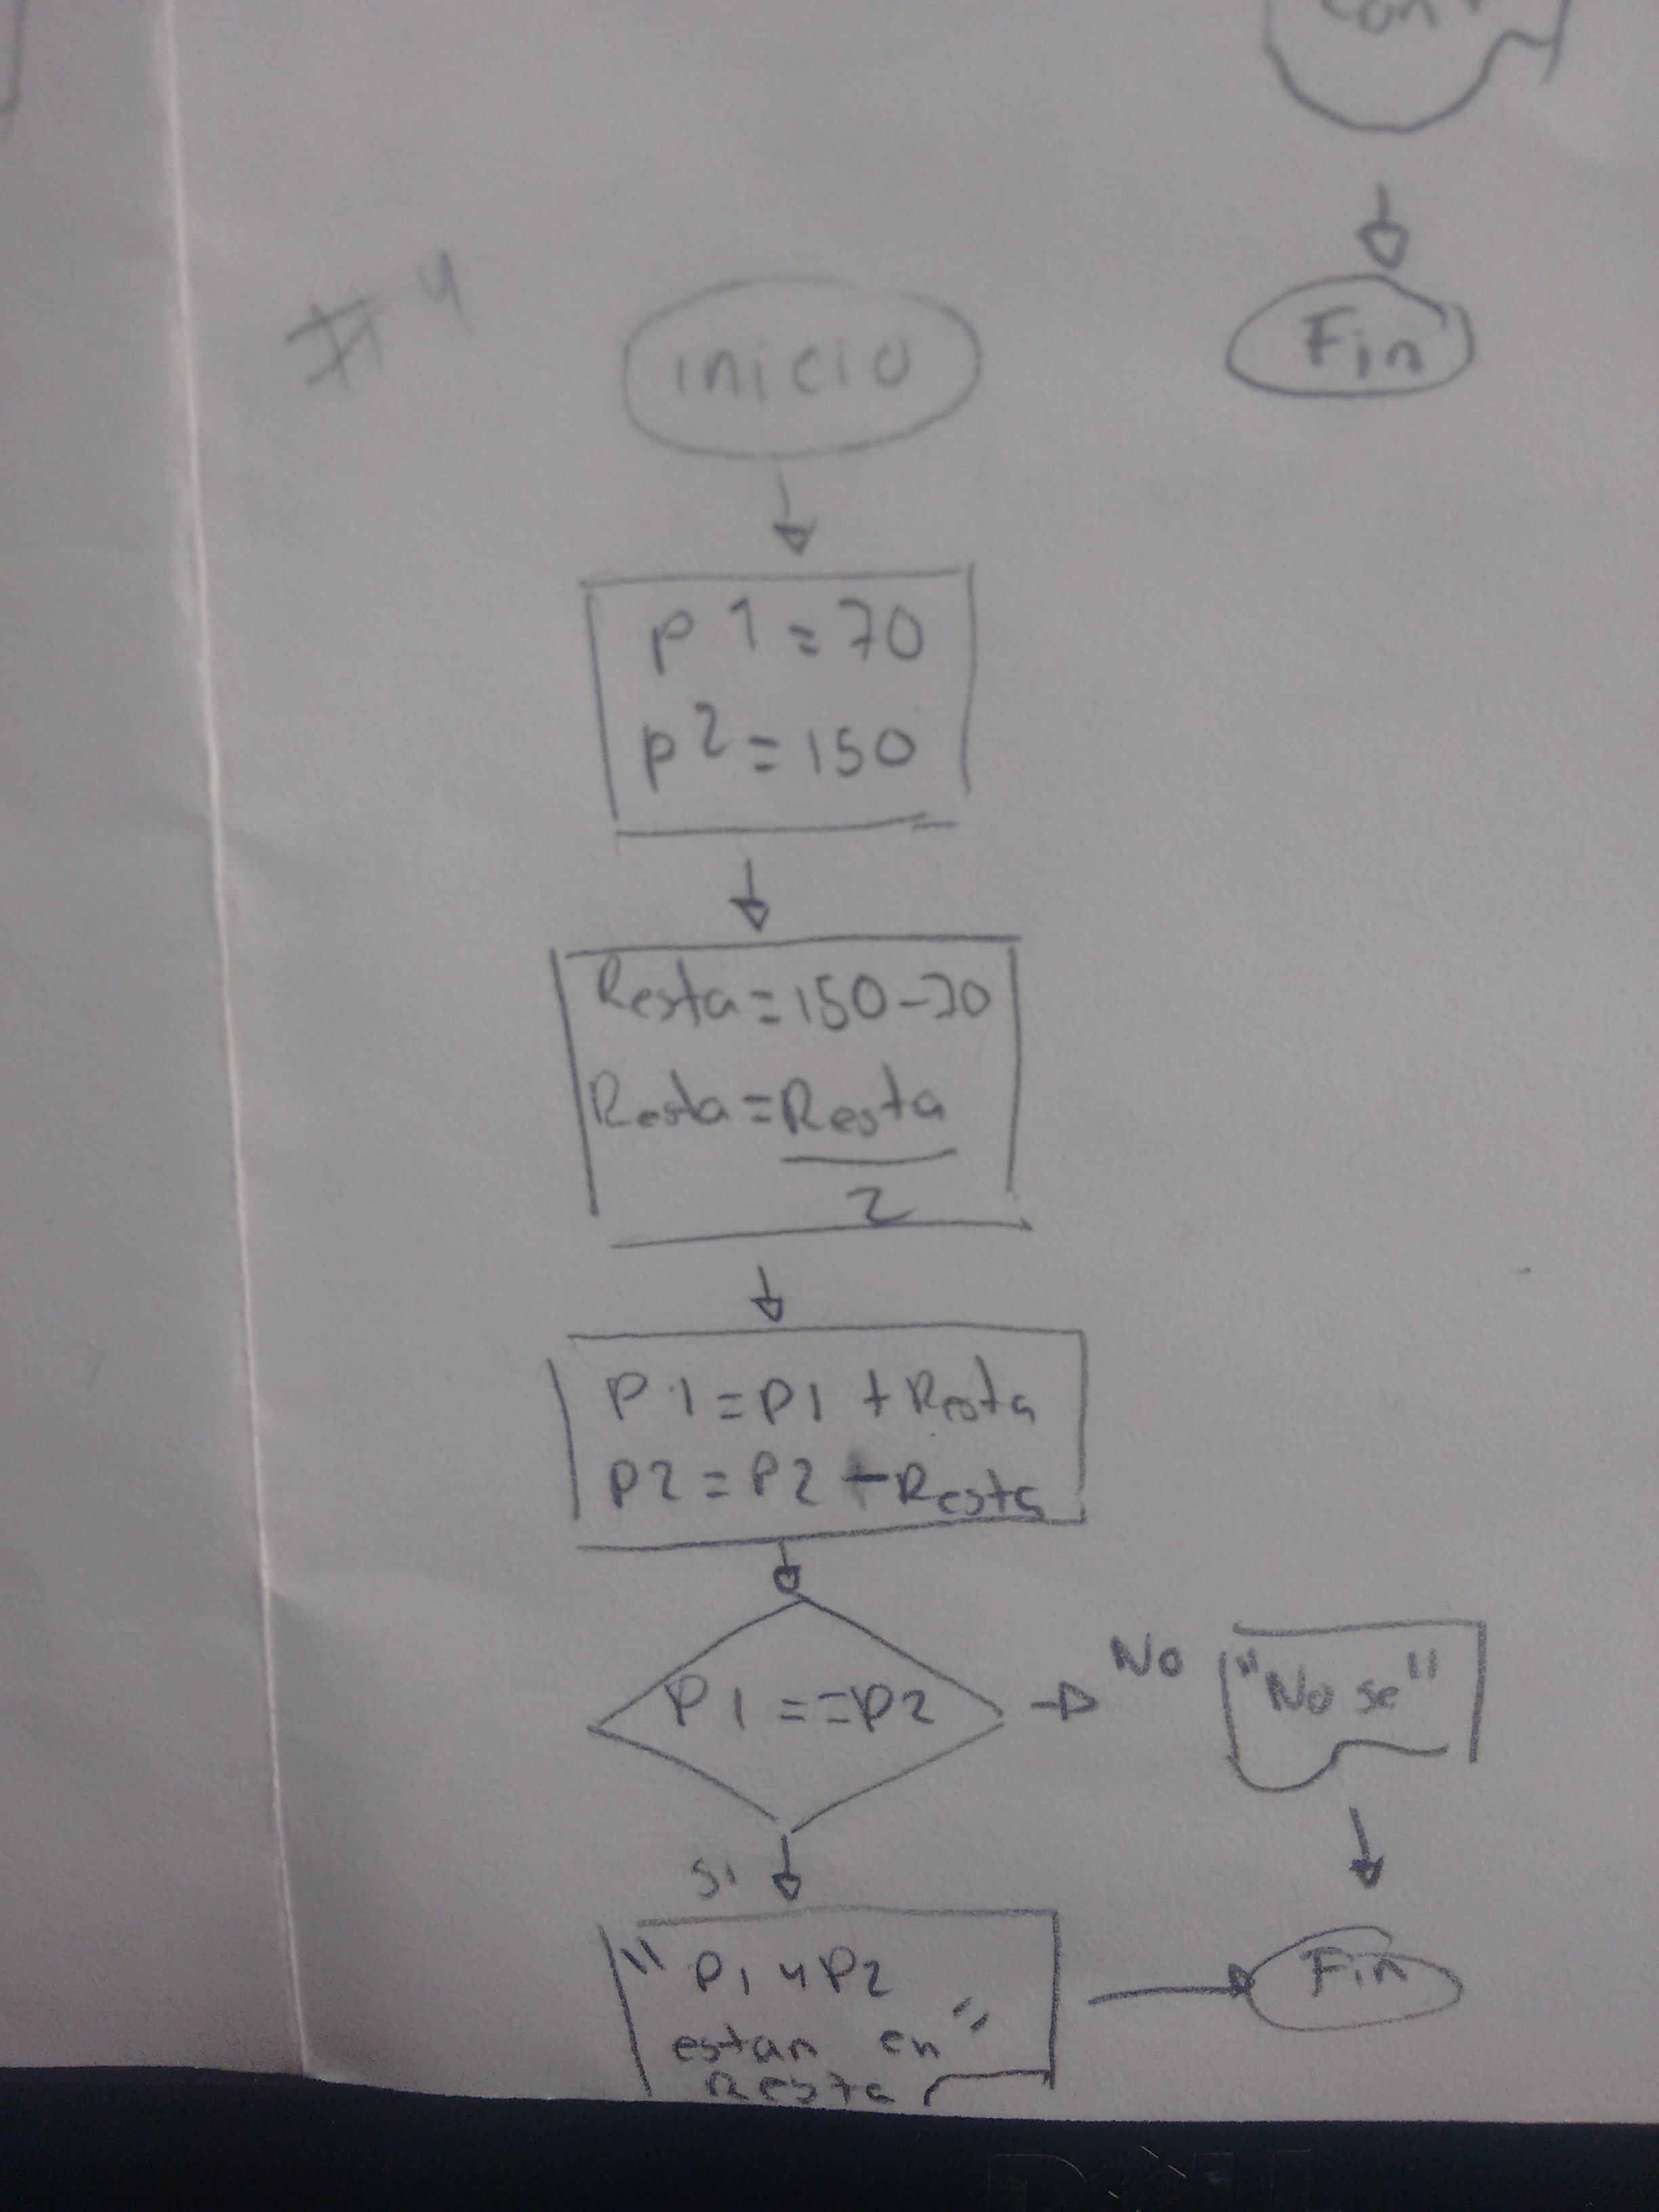 #4
inicio
P1=70
P2=150
Resta=150-70
Resta=Resta
2
P1=P1+Resta
P2=P2-Resta
P1==P2
No
"No se"
Si
"P1 y P2
estan en"
Resta
Fin
Fin